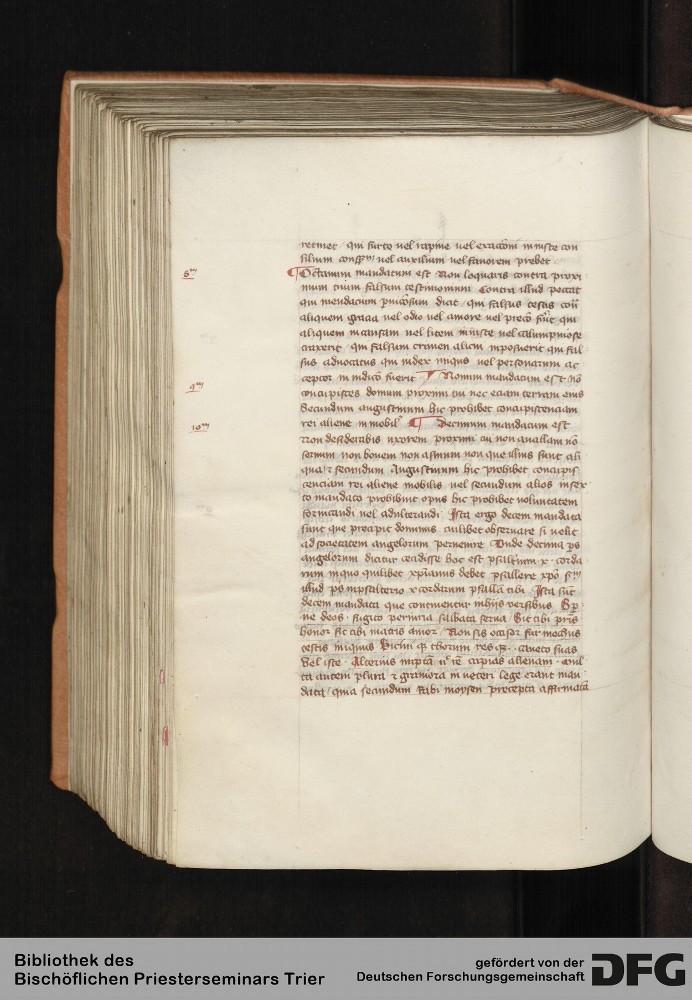 retinet qui furto uel rapine uel exaccõi iniuste con
silium uel auxilium uel fauorem prebet
8ᵘᵐ
Octauum mandatum est Non loquaris contra proxi
mum tuum falsum testimonium Contra illud peccat
qui mendacium dicit qui falsus testis
aliquem gracia uel odio uel amore uel qui
aliquem in causam uel litem iniuste uel calumpniose
traxerit qui falsum crimen alicui inposuerit qui fal
sus aduocatus qui iudex iniqus uel personarum ac
ceptor in iudicõ fuerit Nonum mandatum est nõ
9ᵘᵐ
concupisces domum proximi tui nec eciam terram eius
Secundum augustinum hic prohibet concupiscenciam
rei aliene inmobil' Decimum mandatum est
10ᵘᵐ
Non desiderabis uxorem proximi tui non ancillam nõ
seruum non bouem non asinum non que illius sunt ali
qua et secundum Augustinum hic prohibet concupis
cenciam rei aliene mobilis uel secundum alios in sex
to mandato prohibuit opus hic prohibet voluntatem
fornicandi uel adulterandi Ista ergo decem mandata
sunt que precipit dominus cuilibet obseruare si velit
ad societatem angelorum peruenire Unde decima ps
angelorum dicitur cecidisse hoc est psalterium x corda
rum in quo quilibet xpianus debet psallere xpõ sᵐ
illud ps in psalterio x cordarum psallã tibi Ista sũt
decem mandata que continentur in hijs versibus Sp
ne deos fugito periuria sabbata serua Sit tibi pris
honor sit tibi matris amor Non sis occisor fur mechus
testis iniquus Vicini thorum res caueto suas
Vel iste Alterius nuptã rẽ cupias alienam Mul
ta autem plura et grauiora in ueteri lege erant man
data quia secundum Rabi moysen precepta affirmatĩ
Bibliothek des
Bischöflichen Priesterseminars Trier
gefördert von der
Deutschen Forschungsgemeinschaft
DFG